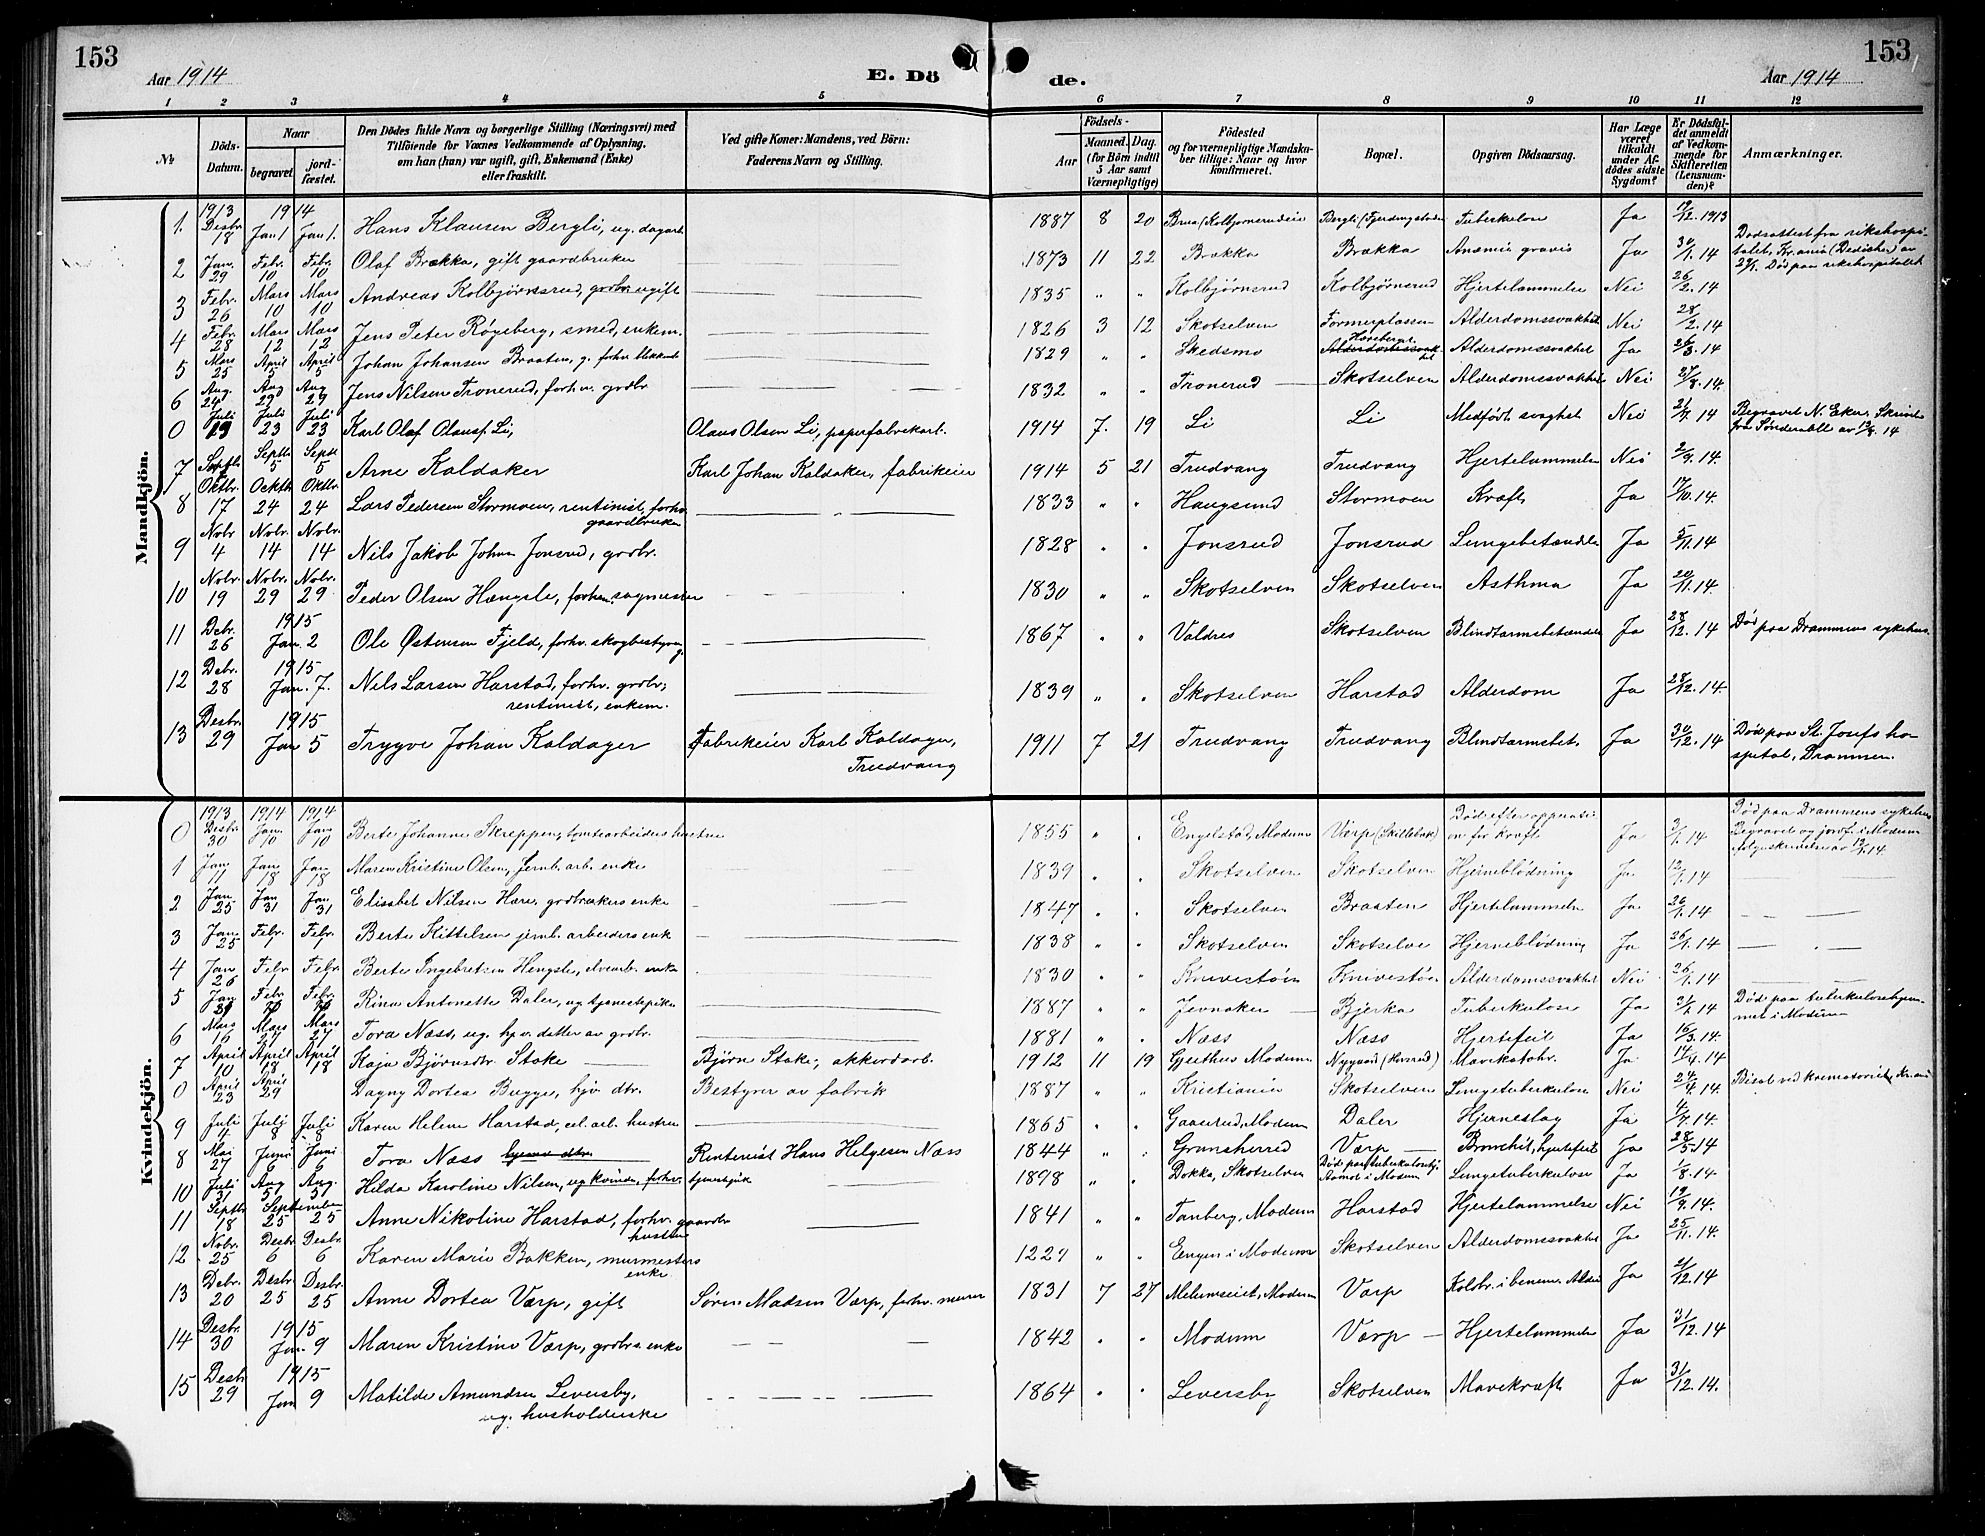 153
Aar 1914
E. Dö
de.
Aar 1914
153
1 2 3 4 5 6 7 8 9 10 11 12
№
Döds-Datum.
Naar
begravet
jordfæstet.
Den Dödes fulde Navn og borgerlige Stilling (Næringsvei) med
Tilföiende for Voxnes Vedkommende af Oplysning,
om han (hun) var ugift, gift, Enkemand (Enke)
eller fraskilt.
Ved gifte Koner: Mandens, ved Börn:
Faderens Navn og Stilling.
Födsels-
Aar
Maaned. (for Börn indtil 5 Aar samt Værnepligtige)
Dag.
Födested
og for værnepligtige Mandskaber tillige: Naar og hvor konfirmeret.
Bopæl.
Opgiven Dödsaarsag.
Har Læge været tilkaldt under Afdödes sidste Sygdom?
Er Dödsfaldet anmeldt af Vedkommende for Skifteretten (Lensmanden)?
Anmærkninger.
Mandkjön.
1. 1913 Desbr 18 1914 Jan 1 Jan 1. Hans Klausen Bergli, ug. dagarb. 1887 8 20 Brua (Kolbjørnrudeie Bergli (Fjerdingstaden Tuberkulose Ja 19/12. 1913
2 Jan. 29 Febr. 10 Febr. 10 Olaf Brækka, gift gaardbruker 1873 11 22 Brækka Brækka Anæmie gravis Ja 30/1. 14 Dødsattest fra rikshospitalet, Kr.ania (Dedichen) av 2/1. Død paa rikshospitalet
3 Febr. 26 Mars 10 Mars 10 Andreas Kolbjørnsrud, grdbr. ugift 1835 " " Kolbjørnsrud Kolbjørnsrud Hjertelammelse Nei 26/2. 14
4 Febr. 28 Mars 12 Mars 12 Jens Peter Røgeberg, smed, enkem. 1826 3 12 Skotselven Formerplassen Alderdomssvakhet Nei 28/2. 14
5 Mars 25 April 5 April 5 Johan Johansen Braaten, g. forhv. 1829 " " Skedsmo Alderdomssvakhet Ja 26/3. 14
6 Aug. 24 Aug 29 Aug 29 Jens Nilsen Tronerud, forhv. grdbr 1832 " " Tronerud Skotselven Alderdomssvakhet Nei 27/8. 14.
0 Juli 19 Juli 23 Juli 23 Karl Olaf Olausf. Li, Olaus Olsen Li, papirfabrikarb. 1914 7. 19 Li Li Medfødt svaghet Nei 21/7. 14 Begravet N. Eker. Skrivelse fra
7 Septb. Septb 5 Septb 5 Arne Kaldaker Karl Johan Kaldaker, fabrikeier 1914 5 21 Trudvang Trudvang Hjertelammelse Nei 2/9. 14.
8 Oktbr. 17 Ockth 24 Oktbr. 24 Lars Pedersen Stormoen, rentinist, forhv. gaardbruker 1833 " " Haugsund Stormoen Kræft Ja 17/10. 14.
9 Nobr 4 Nobr. 14 Nobr. 14 Nils Jakob Johan Jonsrud, grdbr. 1828 " " Jonsrud Jonsrud Lungebetændelse Ja 5/11. 14
10 Nobr. 19 Nobr. 29 Nobr. 29 Peder Olsen Hængsle, forhen. sagmester 1830 " " Skotselven Skotselven Asthma Ja 20/11. 14.
11 Debr. 26 1915 Jan. 2 Ole Østensen Fjeld, forhv. skogbestyrer, 1867 " " Valdres Skotselven Blindtarmsbetændelse Ja 28/12. 14 Død paa Drammens sykehus.
12 Debr. 28 1915 Jan. 7. Nils Larsen Harstad, forhv. grdbr, rentinist, enkem. 1839 " " Skotselven Harstad Alderdom Ja 28/12. 14.
13 Desbr. 29 1915 Jan 5 Trygve Johan Kaldager Fabrikeier Karl Kaldager, Trudvang 1911 7 21 Trudvang Trudvang Blindtarmsbet. Ja 30/12. 14 Død paa St. Josefs hospital, Drammen.
Kvindekjön.
0 1913 Desbr 30 1914 Jan. 10 1914 Jan 10 Berte Johanne Skreppen, tomtearbeiders hustru 1855 " " Engelstad, Modum Værp (Skillebæk) Død efter operation for Kræft Ja 3/1. 14 Død paa Drammens sykehus Begravet og jordf. i Modum følgeskrivelse av 12/1. 14.
1 Jan 11 Jan 18 Jan 18 Maren Kristine Olsen, Jernb. arb. enke 1839 " " Skotselven Skotselven Hjerneblødning Ja 12/1. 14
2 Jan. 25 Jan 31 Jan 31 Elisabet Nilsen Hære, grdbrukers enke 1847 " " Skotselven Braaten Hjertelammelse Ja. 26/1. 14
3 Jan. 25 Febr. Febr. Berte Kittelsen jernb. arbeiders enk 1838 " " Skotselven Skotselve Hjerneblødning Ja 26/1. 14
4 Jan 26 Febr Febr. Berte Ingebretsen Hengsle, elvearb. enke 1830 " " Knivestøen Knivestøen Alderdomssvakhet Nei 26/1. 14
5 Jan Febr. Febr. Rina Antonette Daler, ug tjenestepike 1887 " " Jevnaker Bjerka Tuberkulose Ja 14 Død paa tuberkulosehjemmet i Modum
6 Mars 16 Mars 27 Mars 27 Tora Næss, ug. hjv. datter av grdbr. 1881 " " Næss Næss Hjertefeil Ja 16/3. 14.
7 April 10 April 18 April 18 Kaja Bjørnsdtr. Stake Bjørn Stake, akkordarb. 1912 11 19 Gjethus Modum. Nygaard Mavekatahr. Ja. 14/4. 14
0 April 23 April 29 Dagny Dortea Bugge, hjv. dtr. Bestyrer av fabrik 1887 " " Kristiania Skotselven Lungetuberkulose Nei 24/4. 14. Bisat ved krematoriet, Kr.ania
9 Juli 4 Juli 8 Juli 8 Karen Helene Harstad, cel. arb. hustru 1865 " " Gaaserud, Modum Daler Hjerneslag Ja 4/7. 14.
8 Mai 27 Juni 6 Juni 6 Tora Næss hjemv. dtr. Renterist Hans Helgesen Næss 1844 " " Gransherred Værp Bronchit, hjertefeil Ja 28/5. 14
10 Juli 31 Aug 5 Aug. 5 Hilda Karoline Nilsen, ug kvinde, forhv. tjenestepik 1898 " " Dokka, Skotselven Død paa tuberkulosehj. Aamot i Modum Lungetuberkulose Ja 1/8. 14.
11 Septb. 18 September 25 25 Anne Nikoline Harstad, forhv. gaardbr hustru 1841 " " Tanberg, Modum Harstad Hjertelammelse Nei 19/9. 14.
12 Nobr. 25 Desbr 6 Desbr. 6 Karen Marie Bakken, murmesters enke 1229 " " Engen i Modum Skotselven Alderdomssvakhet Ja 25/11. 14.
13 Debr. 20 Desbr 25 Desbr. 25 Anne Dortea Værp, gift Søren Madsen Værp, forhv. murer 1831 7 27 Melumseiet, Modum Værp Koldbr. i benene. Alder Ja 21/12. 14
14 Desbr. 30 1915 Jan. 9 Maren Kristine Værp, grdbrs. enke 1842 " " Modum Værp Hjertelammelse Ja 31/12. 14
15 Desbr 29 1915 Jan 9 Matilde Amundsen Leversby, ug. husholderske 1864 " " Leversby Skotselven Mavekræft Ja 31/12. 14.